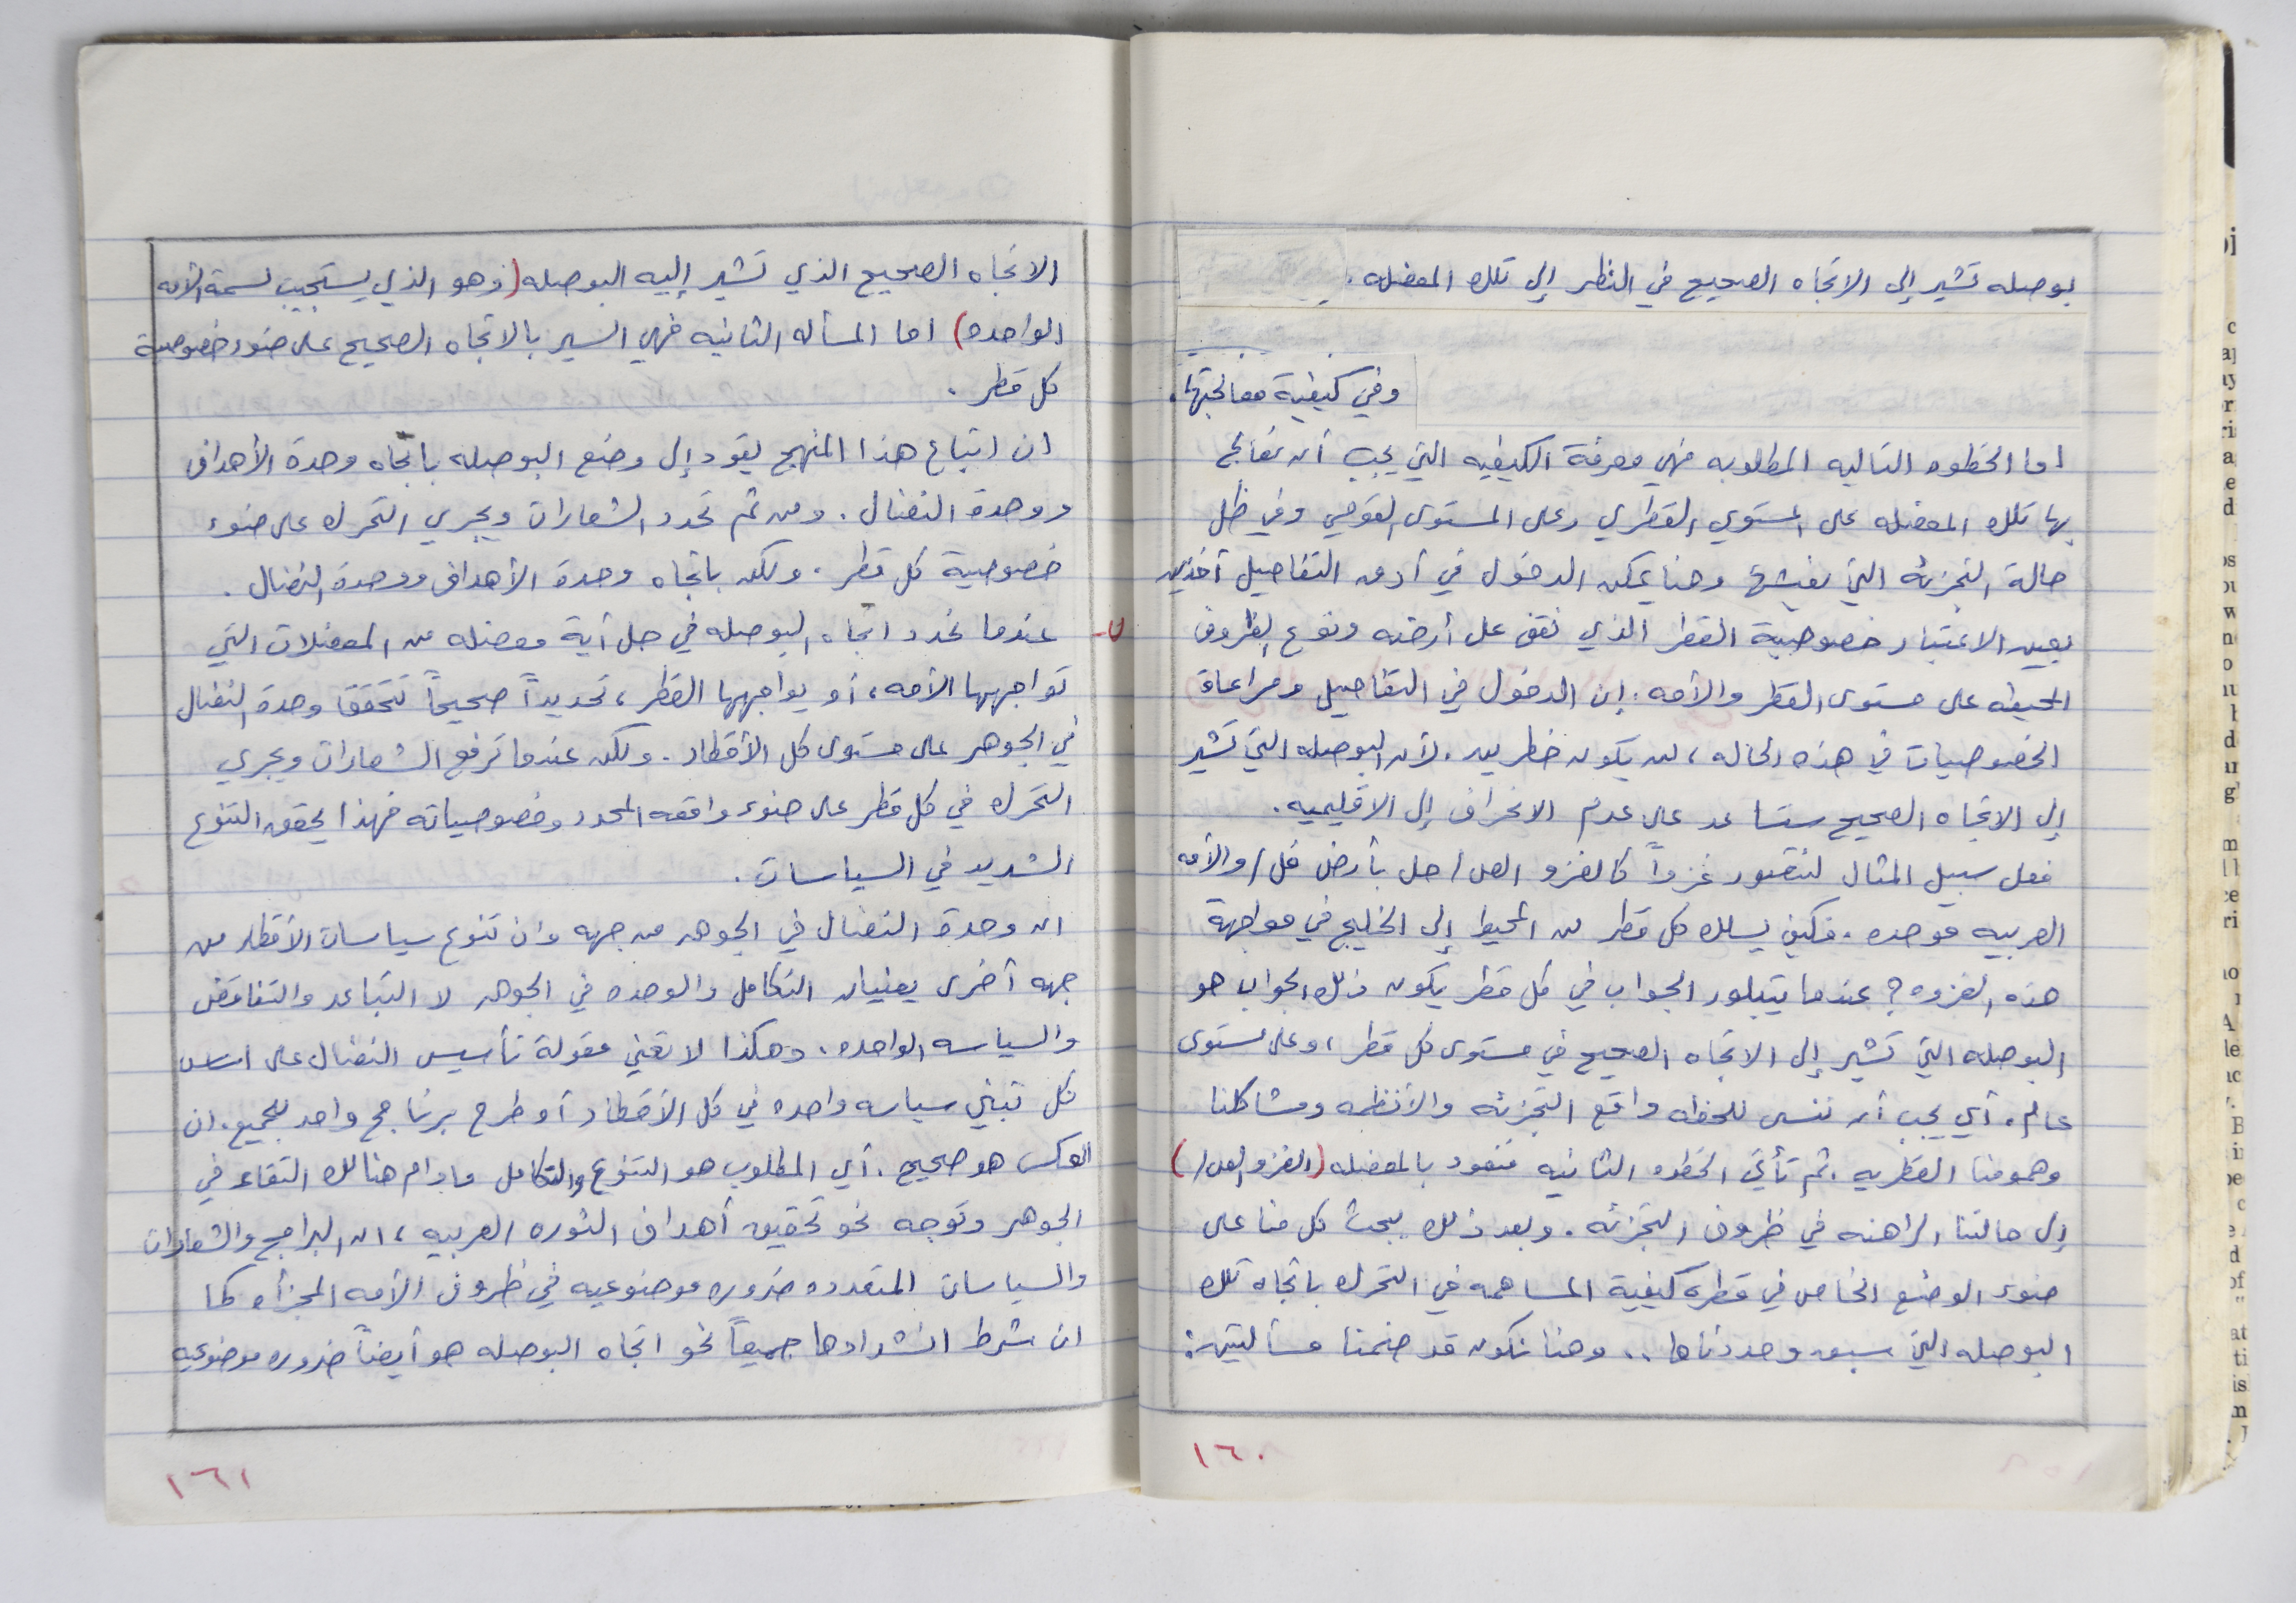 بوصله تشير إلى الاتجاه الصحيح في النظر إلى تلك المعضله.
وفي كيفية معالجتها.
اما الخطوه التاليه المطلوبه فهي معرفة الكيفيه التي يجب أن نعالج
بها تلك المعضله على المستوى القطري وعلى المستوى القومي وفي ظل
حالة التجزئه التي نعيشها وهنا يمكن الدخول في أدق التفاصيل آخذين
بعين الاعتبار خصوصية القطر الذي نقف على أرضه ونوع الظروف
المحيطه على مستوى القطر والأمه. إن الدخول في التفاصيل ومراعاة
الخصوصيات في هذه الحاله، لن يكون خطرين. لأن البوصله التي تشير
إلى الاتجاه الصحيح ستساعد على عدم الانحراف إلى الاقليميه.
فعلى سبيل المثال لنتصور غزواً كالغزو الص/ حل بأرض فل/ والأمه
العربيه موحده. فكيف يسلك كل قطر من المحيط إلى الخليج في مواجهة
هذه الغزوه؟ عندما يتبلور الجواب في كل قطر يكون ذلك الجواب هو
البوصله التي تشير إلى الاتجاه الصحيح في مستوى كل قطر، وعلى مستوى
عام. أي يجب أن ننسى للحظه واقع التجزئه والأنظمه ومشاكلنا
وهمومنا القطريه. ثم تأتي الخطوه الثانيه فنعود بالمعضله (الغزو الص/)
إلى حالتنا الراهنه في ظروف التجزئه. وبعد ذلك يبحث كل منا على
ضوء الوضع الخاص في قطره كيفية المساهمه في التحرك باتجاه تلك
البوصله التي سبق وحددناها .. وهنا نكون قد ضمنا مسألتين:
١٦٠
الاتجاه الصحيح الذي تشير إليه البوصله (وهو الذي يستجيب لسمة الأمه
الواحده) اما المسأله الثانيه فهي السير بالاتجاه الصحيح على ضوء خصوصية
كل قطر.
ان اتباع هذا المنهج يقود إلى وضع البوصله باتجاه وحدة الأهداف
ووحدة النضال. ومن ثم تحدد الشعارات ويجري التحرك على ضوء
خصوصية كل قطر. ولكن باتجاه وحدة الأهداف ووحدة النضال.
عندما نحدد اتجاه البوصله في حل أية معضله من المعضلات التي
تواجهها الأمه، أو يواجهها القطر، تحديداً صحيحاً تتحقق وحدة النضال
في الجوهر على مستوى كل الأقطار. ولكن عندما ترفع الشعارات ويجري
التحرك في كل قطر على ضوء واقعه المحدد وخصوصياته فهذا يحقق التنوع
الشديد في السياسات.
ان وحدة النضال في الجوهر من جهه وان تنوع سياسات الأقطار من
جهه أخرى يعنيان التكامل والوحده في الجوهر لا التباعد والتناقض
والسياسه الواحده. وهكذا لا تعني مقولة تأسيس النضال على اساس
كل تبني سياسه واحده في كل الأقطار أو طرح برنامج واحد للجميع. ان
العكس هو صحيح. أي المطلوب هو التنوع والتكامل مادام هنالك التقاء في
الجوهر وتوجه نحو تحقيق أهداف الثوره العربيه، ان البرامج والشعارات
والسياسات المتعدده ضروره موضوعيه في ظروف الأمه المجزأه كما
ان شرط انشدادها جميعاً نحو اتجاه البوصله هو أيضاً ضروره موضوعيه
١٦١